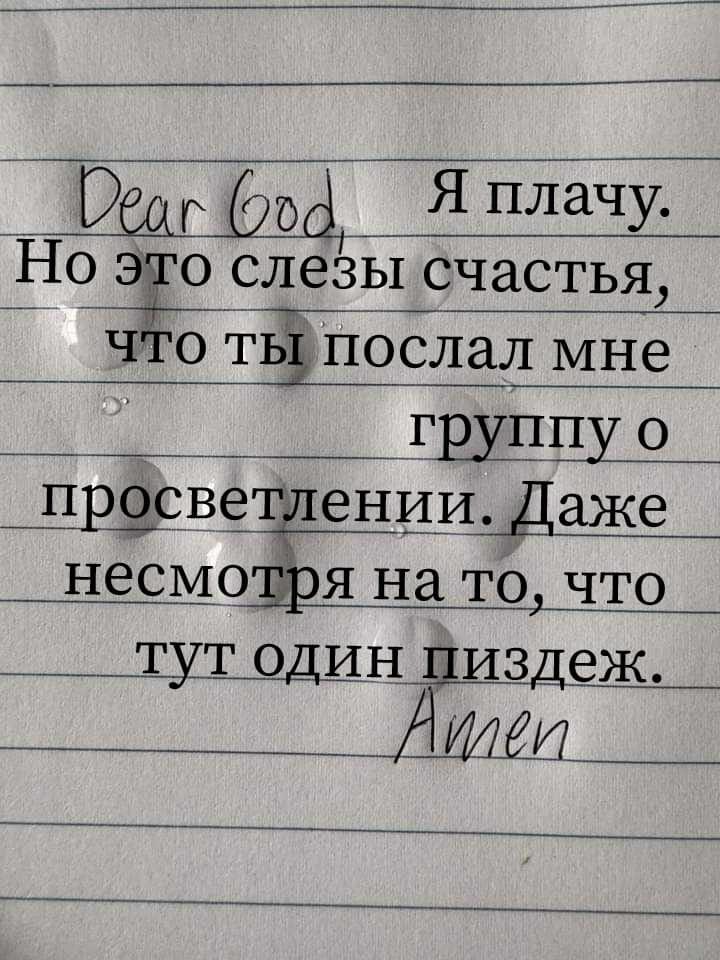 Dear God, Я плачу.
Но это слезы счастья,
что ты послал мне
группу о
просветлении. Даже
несмотря на то, что
тут один пиздеж.
Amen